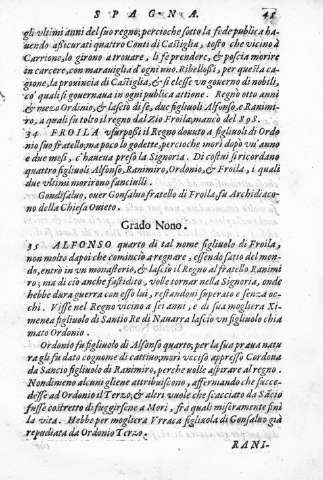 SPAGNA. 41
gli ultimi anni del suo regno; percioche sotto la fede publica ha-
uendo assicurati quattro Conti di Castiglia, tosto che vicino à
Carriono, lo girono a trouare, li fe prendere, & poscia morire
in carcere, con marauiglia d'ogni uno. Ribellossi, per questa ca-
gione, la prouincia di Castiglia, & si elesse un gouerno di nobili,
co' quali si gouernaua in ogni publica attione. Regnò otto anni
& mezo Ordinio, & lasciò di se, due figliuoli Alfonso, e Ranimi-
ro, a quali fu tolto il regno dal Zio Froila, mancò del 898.
34 FROILA usurpossi il Regno douuto a figliuoli di Ordo
nio suo fratello, ma poco lo godette, percioche morì dopò un' anno
e due mesi, c'haueua preso la Signoria. Di costui si ricordano
quattro figliuoli Alfonso, Ranimiro, Ordonio, & Froila, i quali
due ultimi morirono fanciulli.
Gondisaluo, ouer Gonsaluo fratello di Froila, fu Archidiaco-
no della Chiesa Oueto.
Grado Nono.
35 ALFONSO quarto di tal nome figliuolo di Froila,
non molto dapoi che cominciò a regnare, essendo satto del mon-
do, entrò in un monasterio, & lasciò il Regno al fratello Ranimi
ro; ma di ciò anche fastidito, volle tornar nella Signoria, onde
hebbe dura guerra con esso lui, restandoui superato e senza oc-
chi. Visse nel Regno vicino a sei anni, e di sua mogliera Xi-
menea figliuolo di Santio Re di Nauarra lasciò un figliuolo chia
mato Ordonio.
Ordonio fu figliuolo di Alfonso quarto; per la sua praua natu
ra gli fu dato cognome di cattiuo; morì ucciso appresso Cordoua
da Sancio figliuolo di Ranimiro, perche uolle aspirare al regno.
Nondimeno alcuni gliene attribuiscono, affermando che succe-
desse ad Ordonio il Terzo, & altri vuole che scacciato da Sācio
fusse costretto di fuggirsene a Mori, fra quali miseramente finì
la vita. Hebbe per mogliera Vrraca figliuola di Gonsaluo già
repudiata da Ordonio Terzo.
RANI-